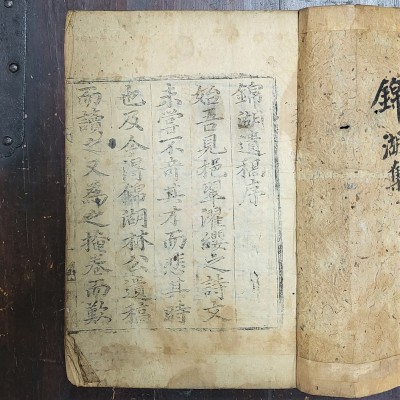 錦湖集
錦湖遺稿序
始吾見挹翠濯纓之詩文
未嘗不奇其才而悲其時
也及今得錦湖林公遺稿
而讀之又為之掩卷而歎